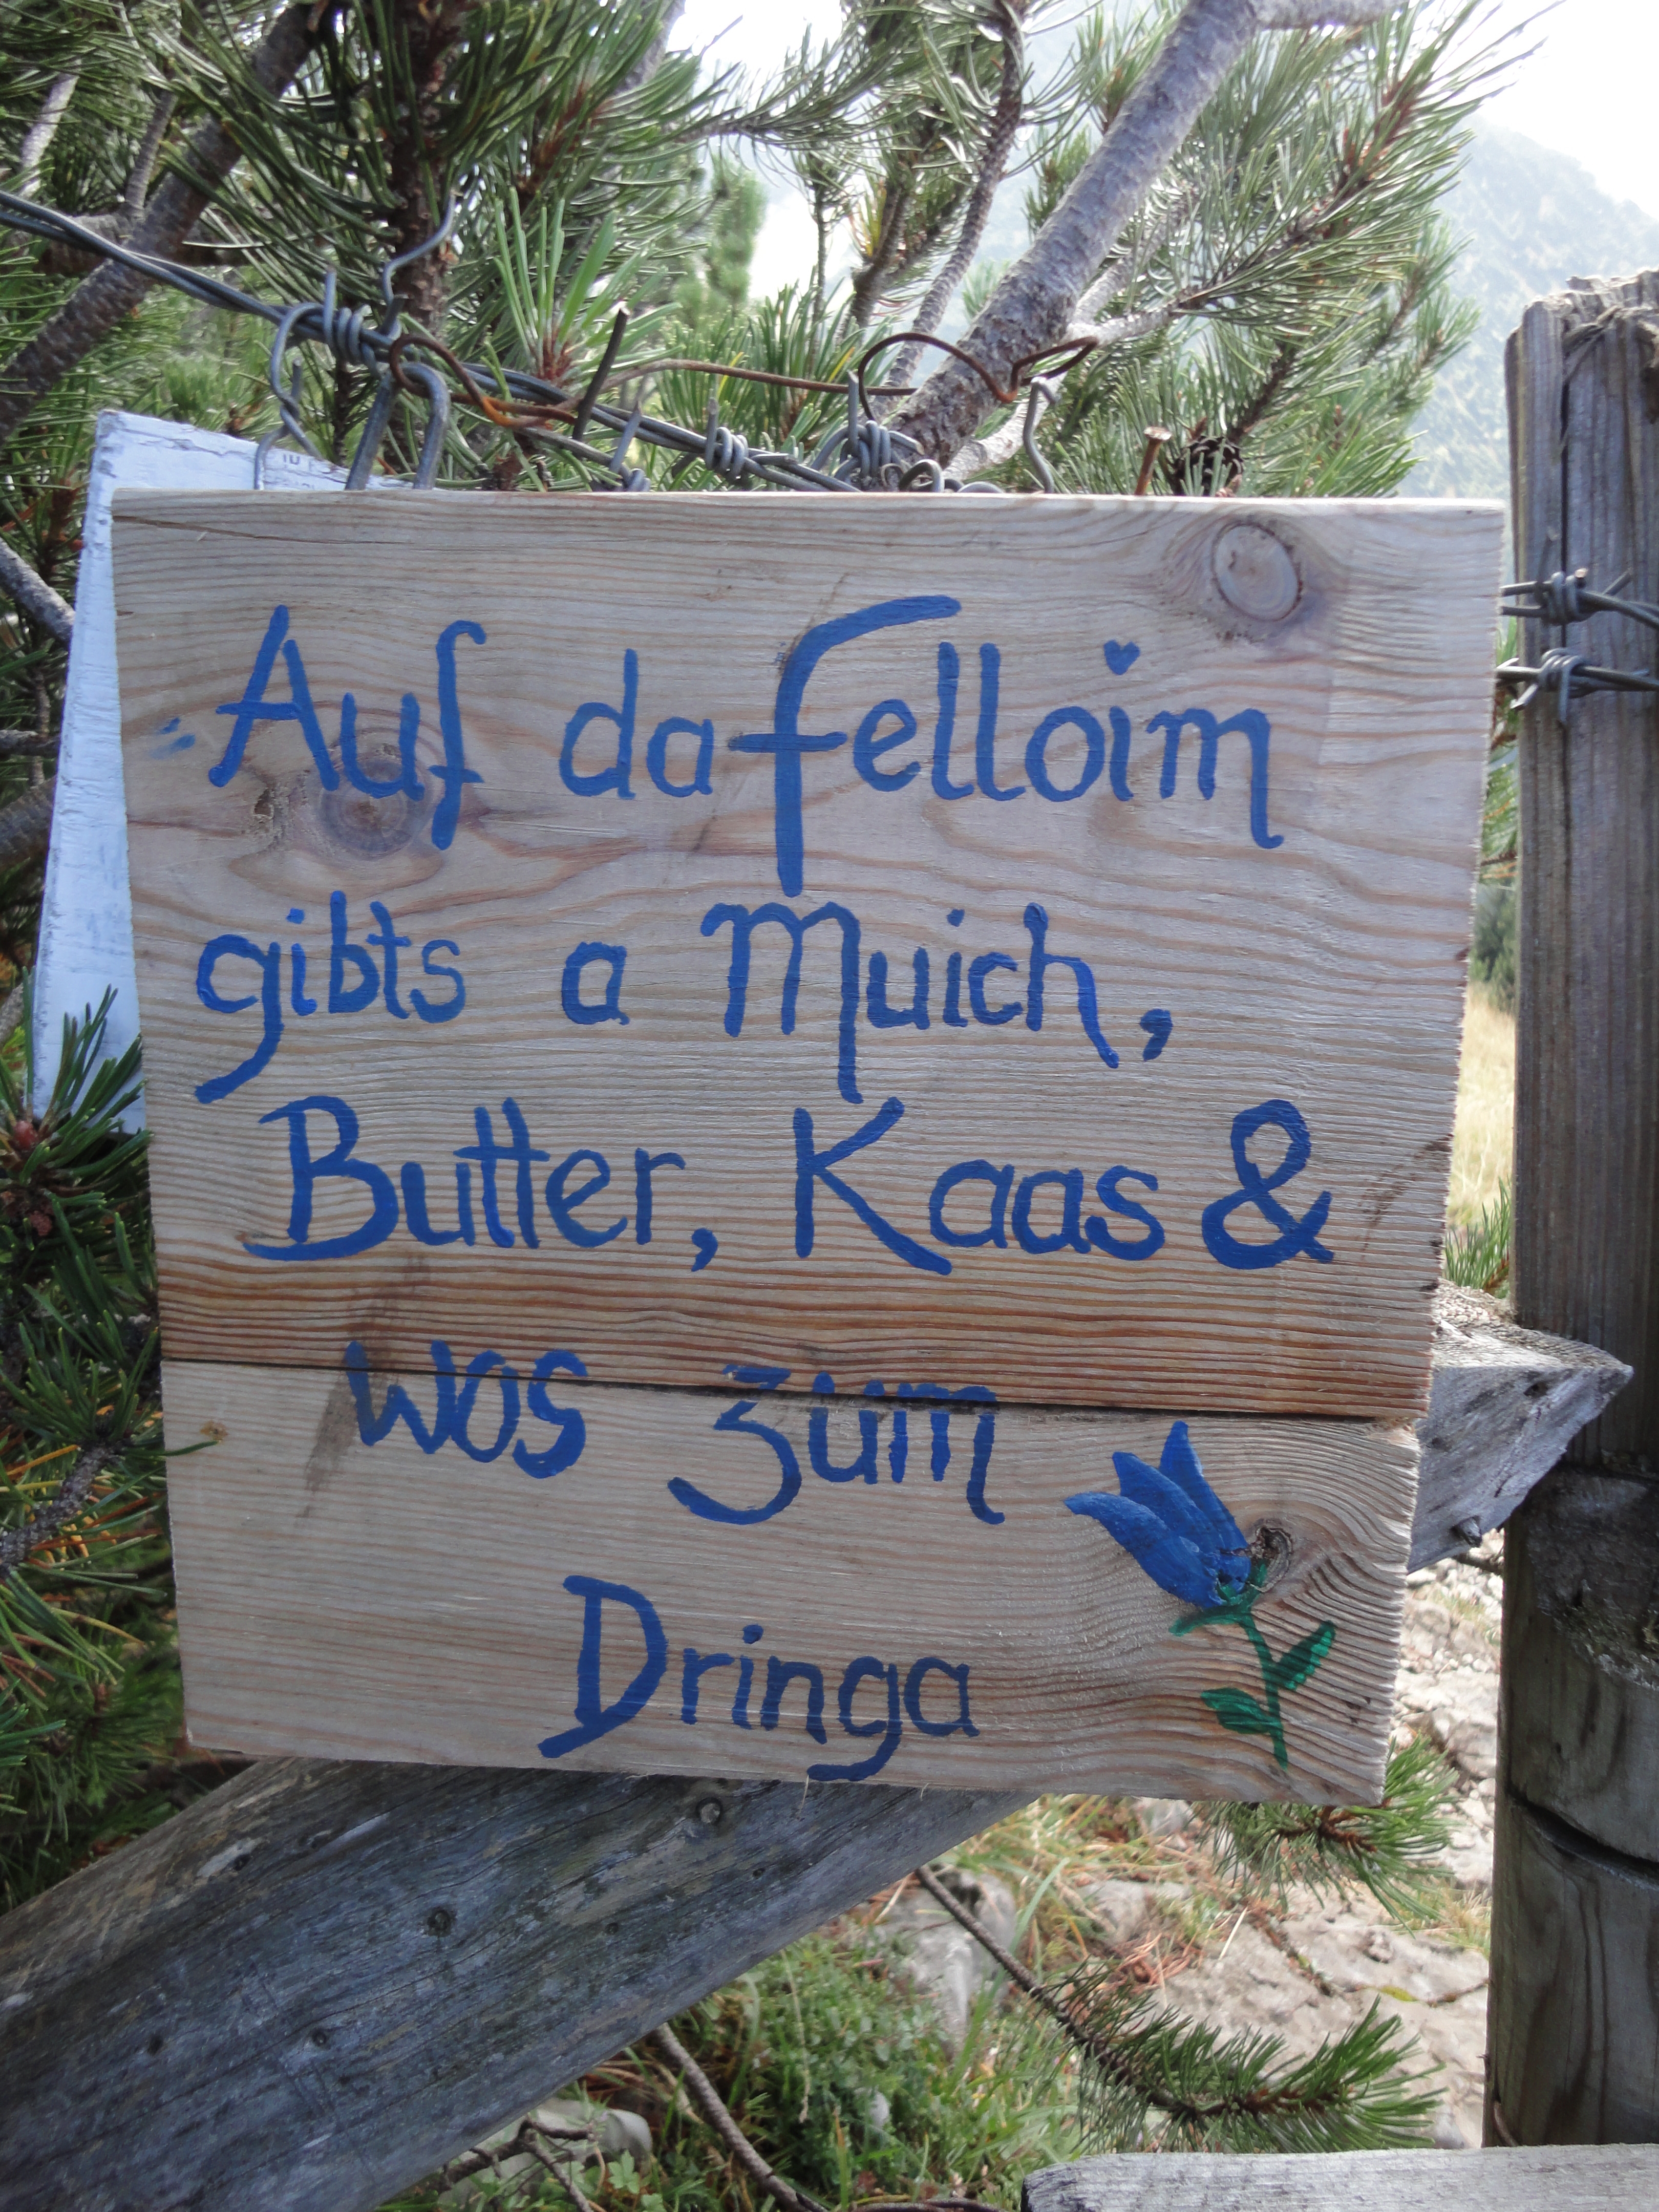 Auf da Felloim
gibts a Muich,
Butter, Kaas &
wos zum
Dringa